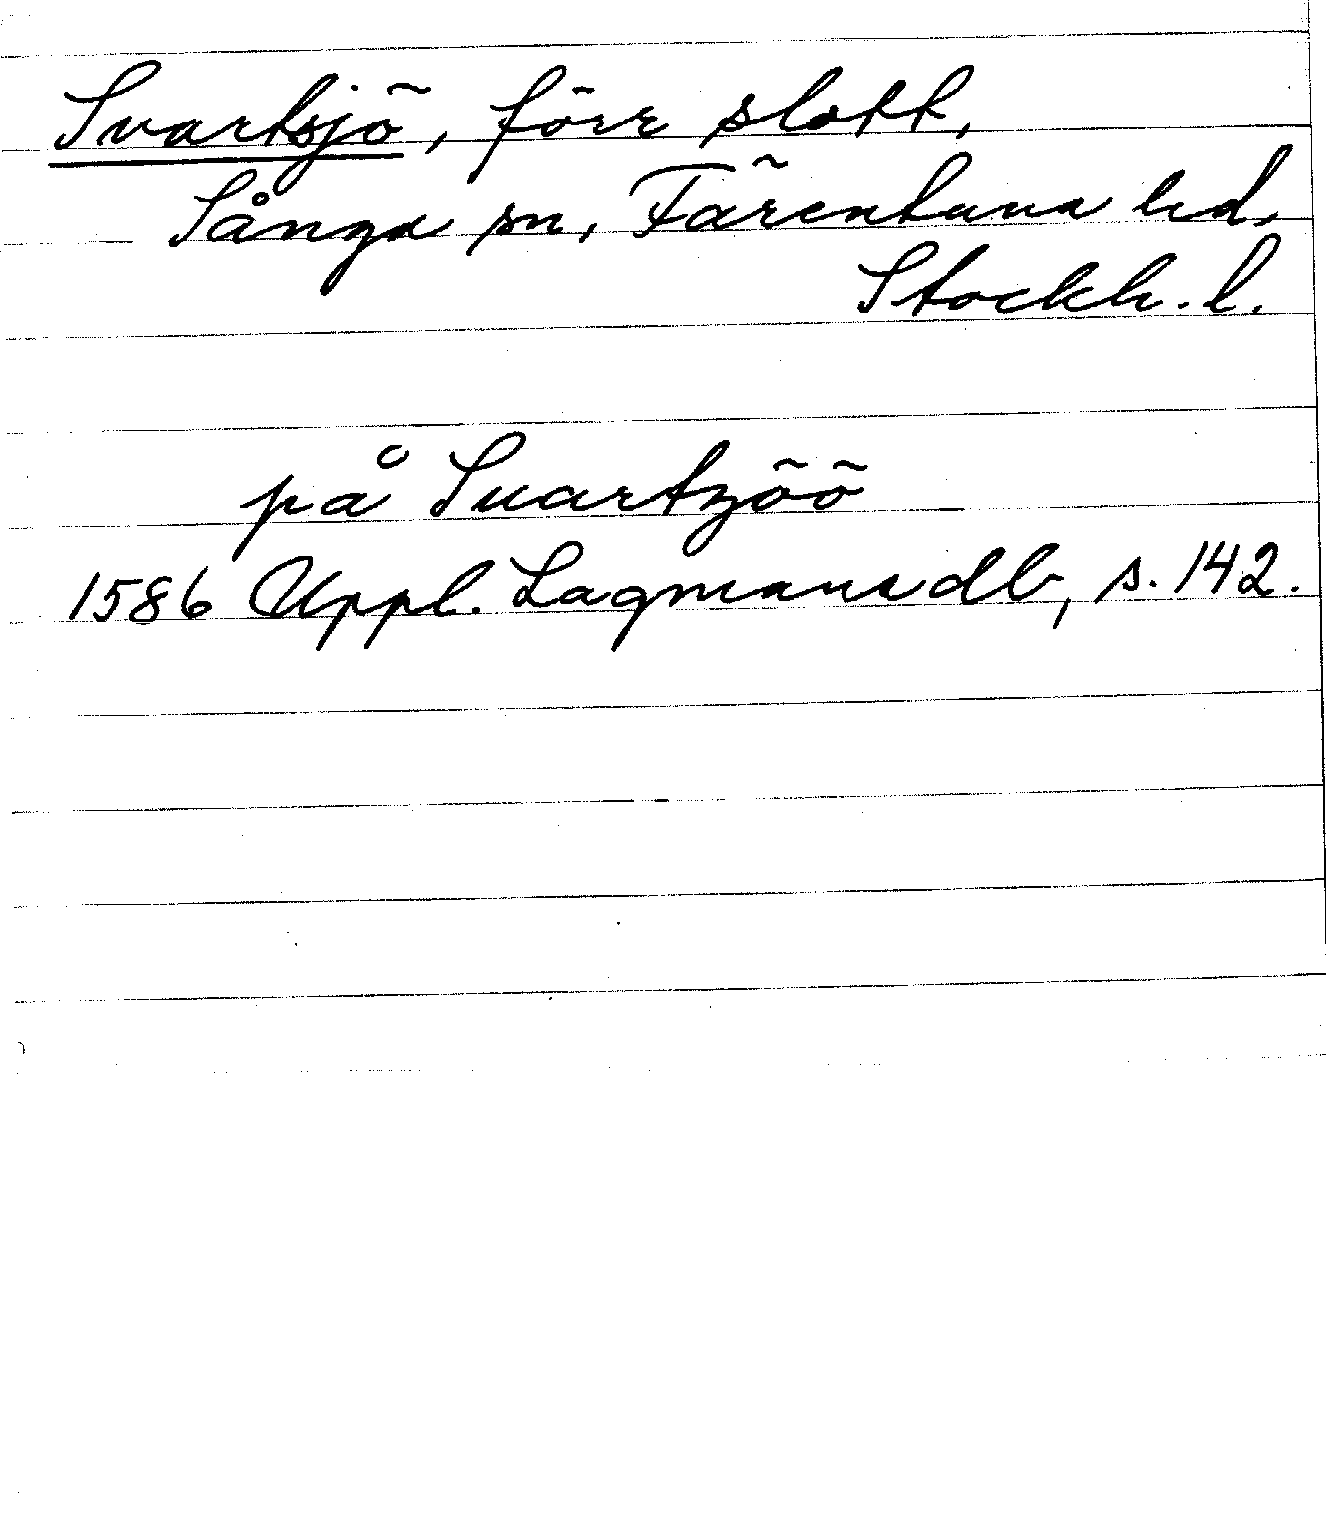 Svartsjö, förr slott,
Sånga sn, Färentuna hd,
Stockh. l.
på Suartzöö
1586 Uppl. Lagmansdb, s. 142.